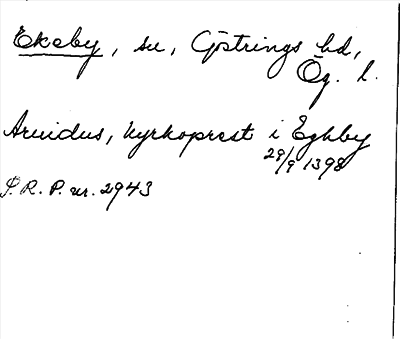 Ekeby, sn, Göstrings hd,
Ög. l.
Arvidus, kyrkoprest i Eghby
29/9 1398
S.R.P. nr. 2943